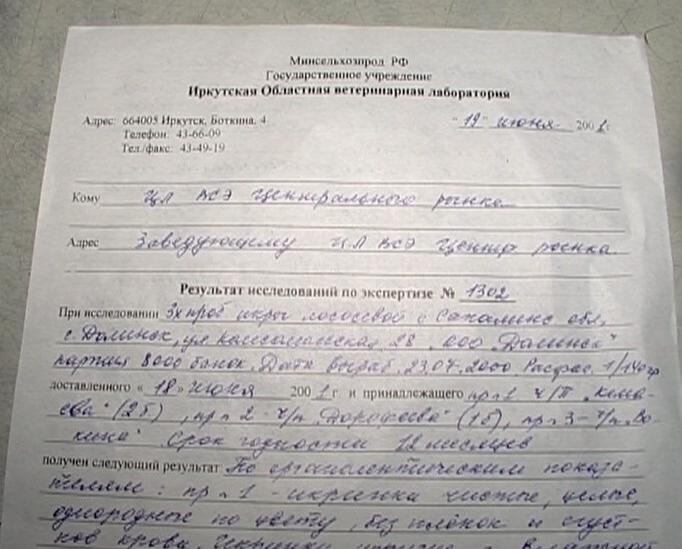 Минсельхозпрод РФ
Государственное учреждение
Иркутская Областная ветеринарная лаборатория
Адрес: 664005 Иркутск, Боткина, 4
"19" июня 2001г.
Телефон: 43-66-09
Тел./факс: 43-49-19
Кому ЦЛ ВСЭ Центрального рынка
Адрес Заведующему ЦЛ ВСЭ Центр рынка
Результат исследований по экспертизе № 1302
При исследовании 3х проб икры лососевой с Сахалинс обл,
с. Долинск, ул Комсомольская 28 ООО „Долинск"
партия 8000 банок. Дата выраб. 23.07.2000 Расфас. 1/140гр
доставленного « 18 » июня 2001г и принадлежащего пр-1 ч/п
(2б), пр-2-ч/п „Дорофеева" (1б), пр-3-ч/п
Срок годности 12 месяцев
получен следующий результат По органолептическим показа-
телям: пр-1-икринки чистые, целые,
однородные по цвету, без плёнок и сгуст-
ков крови. Икринки